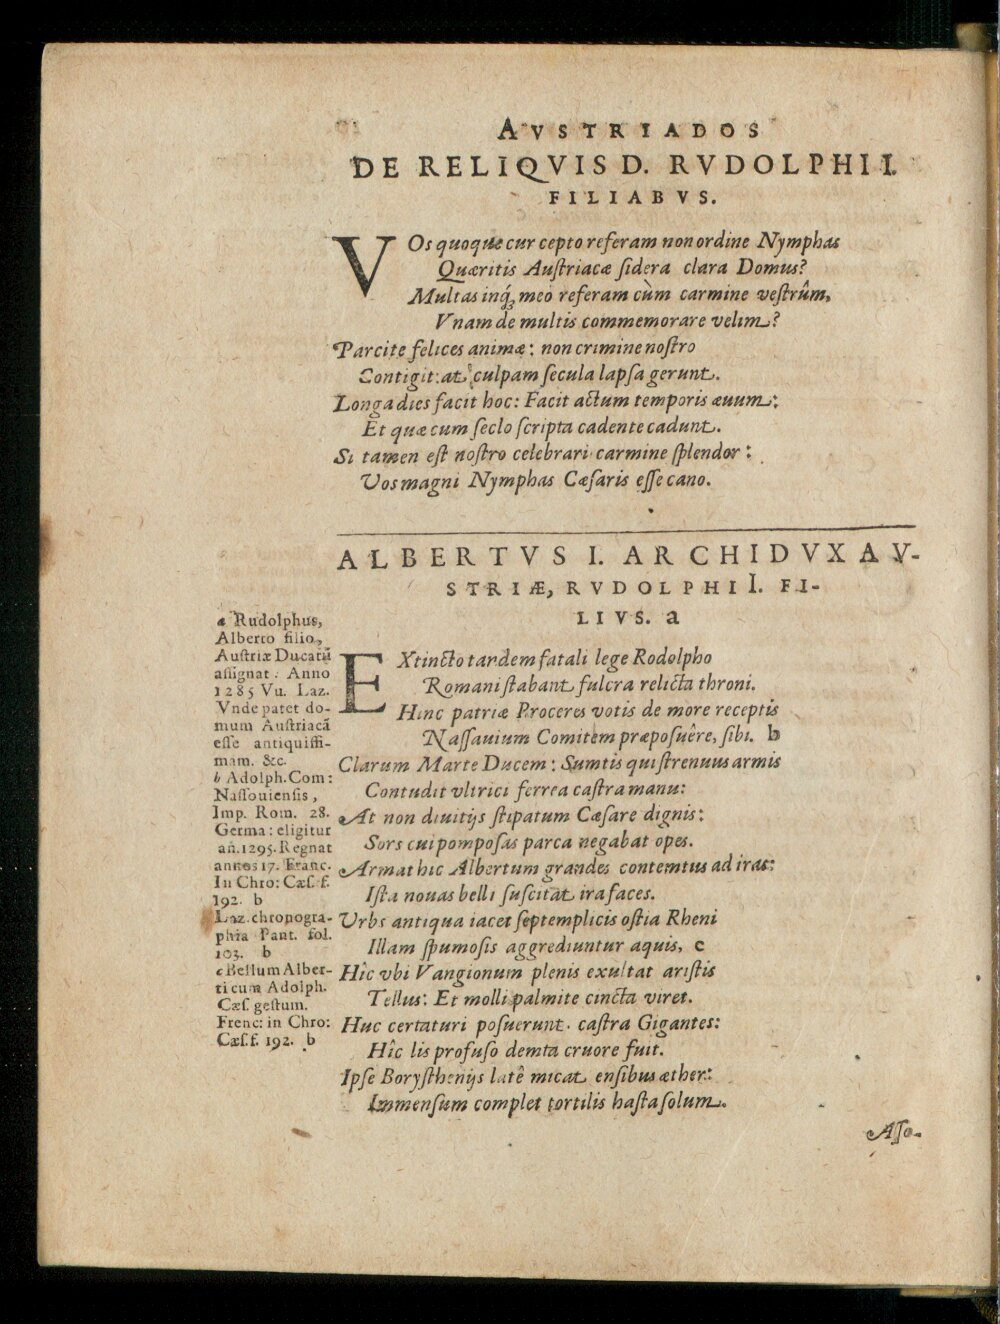 AVSTRIADOS
DE RELIQVIS D. RVDOLPHI I.
FILIABVS.
VOs quoque cur cepto referam non ordine Nymphas
Quæritis Austriacæ sidera clara Domus?
Multas inq́; meo referam cùm carmine vestrûm,
Vnam de multis commemorare velim?
Parcite felices animæ: non crimine nostro
Contigit: at culpam secula lapsa gerunt.
Longa dies facit hoc: Facit actum temporis æuum:
Et quæ cum seclo scripta cadente cadunt.
Si tamen est nostro celebrari carmine splendor:
Vos magni Nymphas Cæsaris esse cano.
ALBERTVS I. ARCHIDVX AV-
STRIÆ, RVDOLPHI I. FI-
LIVS. a
EXtincto tandem fatali lege Rodolpho
Romani stabant fulcra relicta throni.
Hinc patriæ Proceres votis de more receptis
Nassauium Comitem præposuêre, sibi. b
Clarum Marte Ducem: Sumtis qui strenuus armis
Contudit vltrici ferrea castra manu:
At non diuitijs stipatum Cæsare dignis:
Sors cui pomposas parca negabat opes.
Armat hic Albertum grandes contemtus ad iras:
Ista nouas belli suscitat ira faces.
Vrbs antiqua iacet septemplicis ostia Rheni
Illam spumosis aggrediuntur aquis, c
Hîc vbi Vangionum plenis exultat aristis
Tellus: Et molli palmite cincta viret.
Huc certaturi posuerunt castra Gigantes:
Hîc lis profuso demta cruore fuit.
Ipse Borysthenijs latê micat ensibus æther:
Immensum complet tortilis hasta solum.
Aso-
a Rudolphus,
Alberto filio,
Austriæ Ducatũ
assignat. Anno
1285 Vu. Laz.
Vnde patet do-
mum Austriacã
esse antiquissi-
mam. &c.
b Adolph. Com:
Nassouiensis,
Imp. Rom. 28.
Germa: eligitur
añ. 1295. Regnat
annos 17. Franc.
In Chro: Cæs. f.
192. b
Laz. chronogra-
phia Pant. fol.
103. b
c Bellum Alber-
ti cum Adolph.
Cæs. gestum.
Frenc: in Chro:
Cæs. f. 192. b